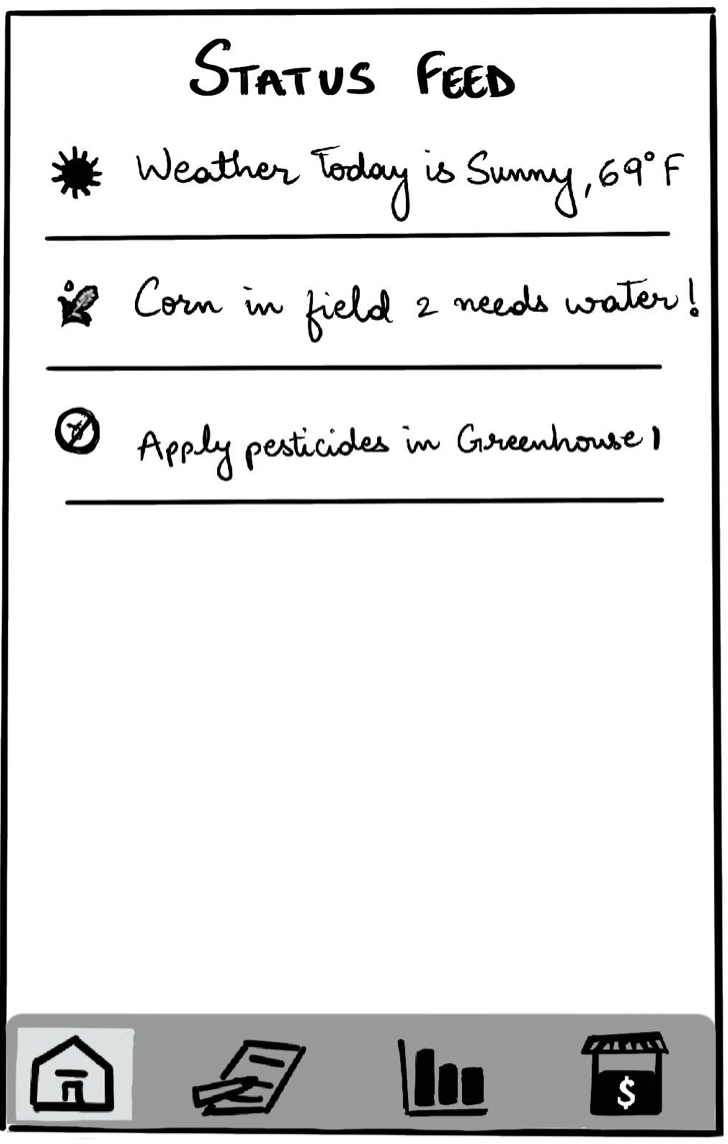 STATUS FEED
Weather Today is Sunny, 69°F
Corn in field 2 needs water!
Apply pesticides in Greenhouse 1
$